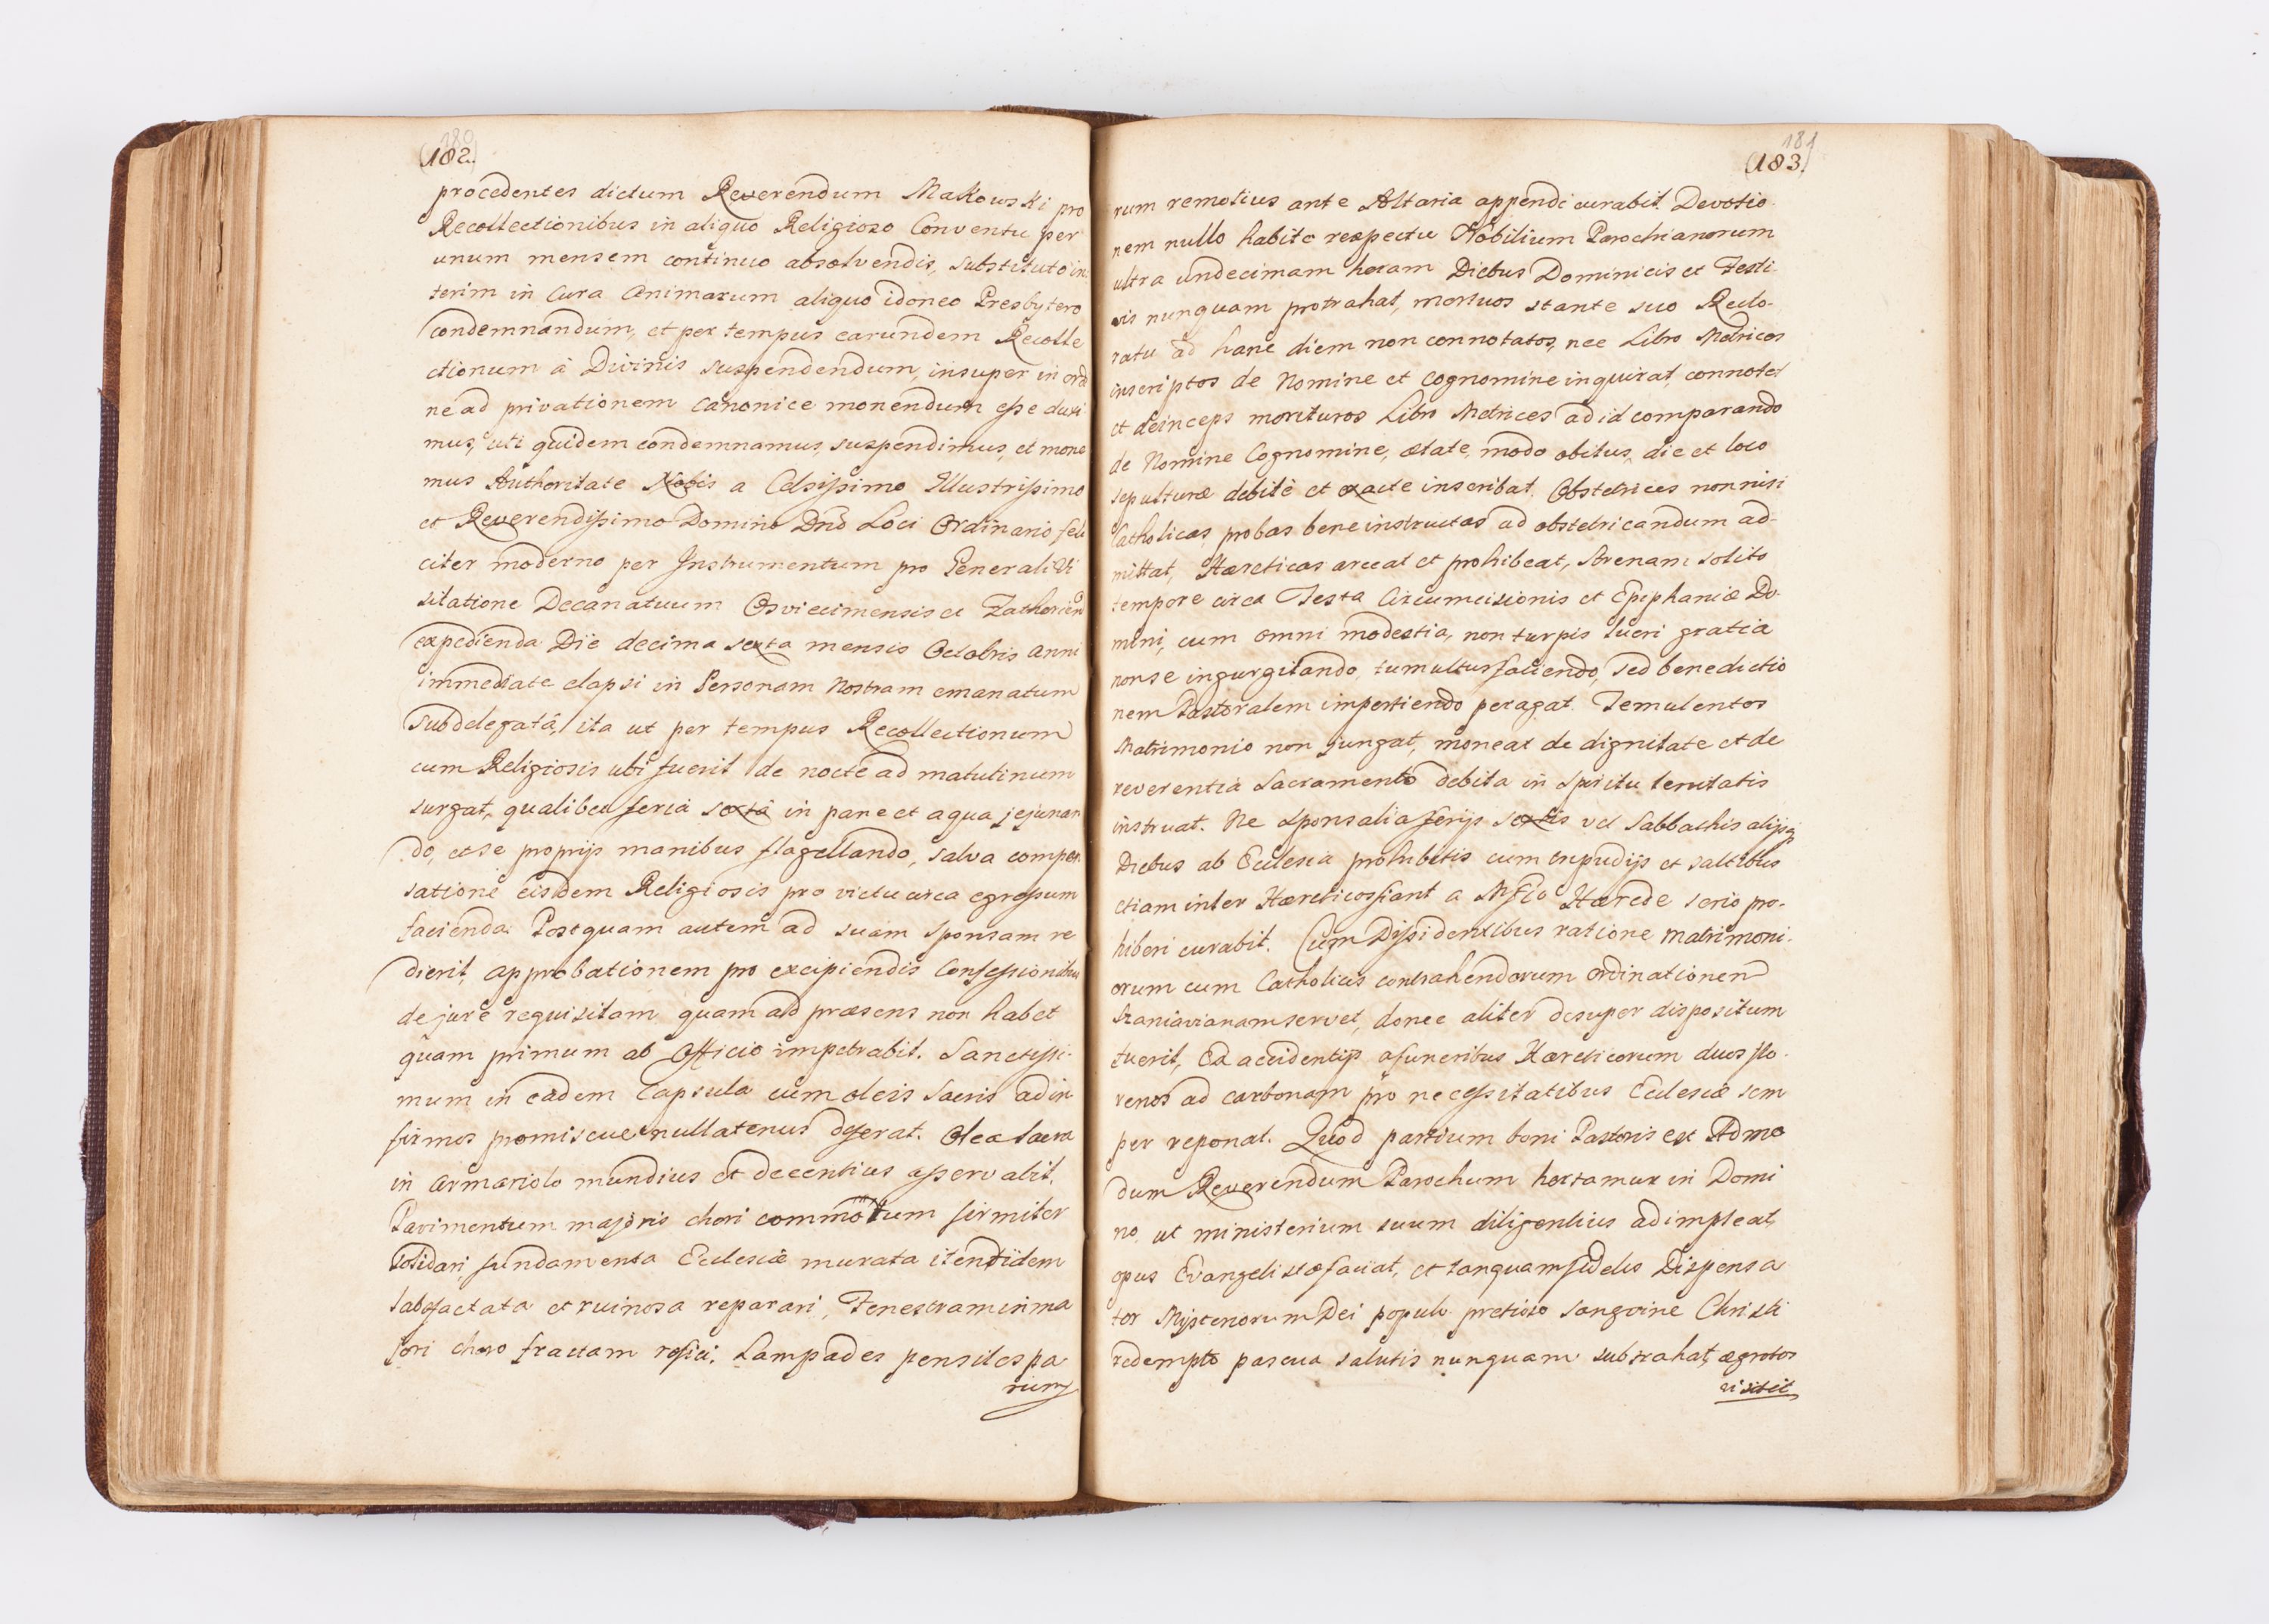 180
(182.)
procedentes dictum Reverendum Makowski pro
Recollectionibus in aliquo Religioso Conventu per
unum mensem continuo absolvendis, substituto in
terim in Cura Animarum aliquo idoneo Presbytero
condemnandum, et per tempus earundem Recolle
ctionum à Divinis suspendendum, insuper in ordi
ne ad privationem canonice monendum esse duxi
mus, uti quidem condemnamus, suspendimus, et mone
mus Authoritate Nobis a Celsissimo Illustrissimo
et Reverendissimo Domino Dno Loci Ordinario feli
citer moderno per Instrumentum pro Generali Vi
sitatione Decanatuum Osviecimensis et Zathorien
expedienda Die decima sexta mensis Octobris anni
immediate elapsi in Personam Nostram emanatum
subdelegatâ, ita ut per tempus Recollectionum
cum Religiosis ubi fuerit de nocte ad matutinum
surgat, qualibet feria sexta in pane et aqua jejunan
do, et se proprijs manibus flagellando, salva compen
satione eisdem Religiosis pro victu circa egressum
facienda. Postquam autem ad suam Sponsam re
dierit, approbationem pro excipiendis Confessionibus
de jure requisitam quam ad præsens non habet
quam primum ab Officio impetrabit. Sanctissi-
mum in eadem Capsula cum oleis Sacris ad in
firmos promiscue nullatenus deferat. Olea Sacra
in armariolo mundius et decentius asservabit.
Pavimentum majoris chori commotum firmiter
solidari, fundamenta Ecclesiæ murata itentidem
labefactata et ruinosa reparari, Fenestram in ma
jori choro fractam refici, Lampades pensiles pa
rum
181
(183.)
rum remotius ante Altaria appendi curabit. Devotio-
nem nullo habito respectu Nobilium Parochianorum
ultra undecimam horam Diebus Dominicis et Festi-
vis nunquam protrahat, mortuos stante suo Recto-
ratu ad hanc diem non connotatos, nec Libro Metrices
inscriptos de Nomine et Cognomine inquirat, connotet
et deinceps morituros Libro Metrices ad id comparando
de Nomine Cognomine, ætate, modo obitus, die et loco
sepulturæ debitè et exacte inscribat. Obstetrices nonnisi
Catholicas, probas bene instructas ad obstetricandum ad-
mittat, Hæreticas arceat et prohibeat, Strenam solito
tempore circa Festa Circumcisionis et Epiphaniæ Do-
mini, cum omni modestia, non turpis lucri gratia
non se ingurgitando, tumultus faciendo, sed benedictio
nem Pastoralem impertiendo peragat. Temulentos
Matrimonio non jungat, moneat de dignitate et de
reverentia Sacramento debita in Spiritu lenitatis
instruat. Ne Sponsalia ferijs sextis vel Sabbathis alijsq
Diebus ab Ecclesia prohibitis cum tripudijs et saltibus
etiam inter Hæreticos fiant a Mfco Hærede serio pro-
hiberi curabit. Cum Dissidentibus ratione Matrimoni-
orum cum Catholicis contrahendorum ordinationem
Szaniavianam servet, donec aliter desuper dispositum
fuerit, Ex accidentijs a funeribus Hæreticorum duos flo-
renos ad carbonam pro necessitatibus Ecclesiæ sem
per reponat. Quod partium boni Pastoris est Admo
dum Reverendum Parochum hortamur in Domi
no, ut ministerium suum diligentius adimpleat,
opus Evangelistæ faciat, et tanquam fidelis Dispensa
tor Mysteriorum Dei populo pretioso Sanguine Christi
redempto pascua salutis nunquam subtrahat, ægrotos
visitet